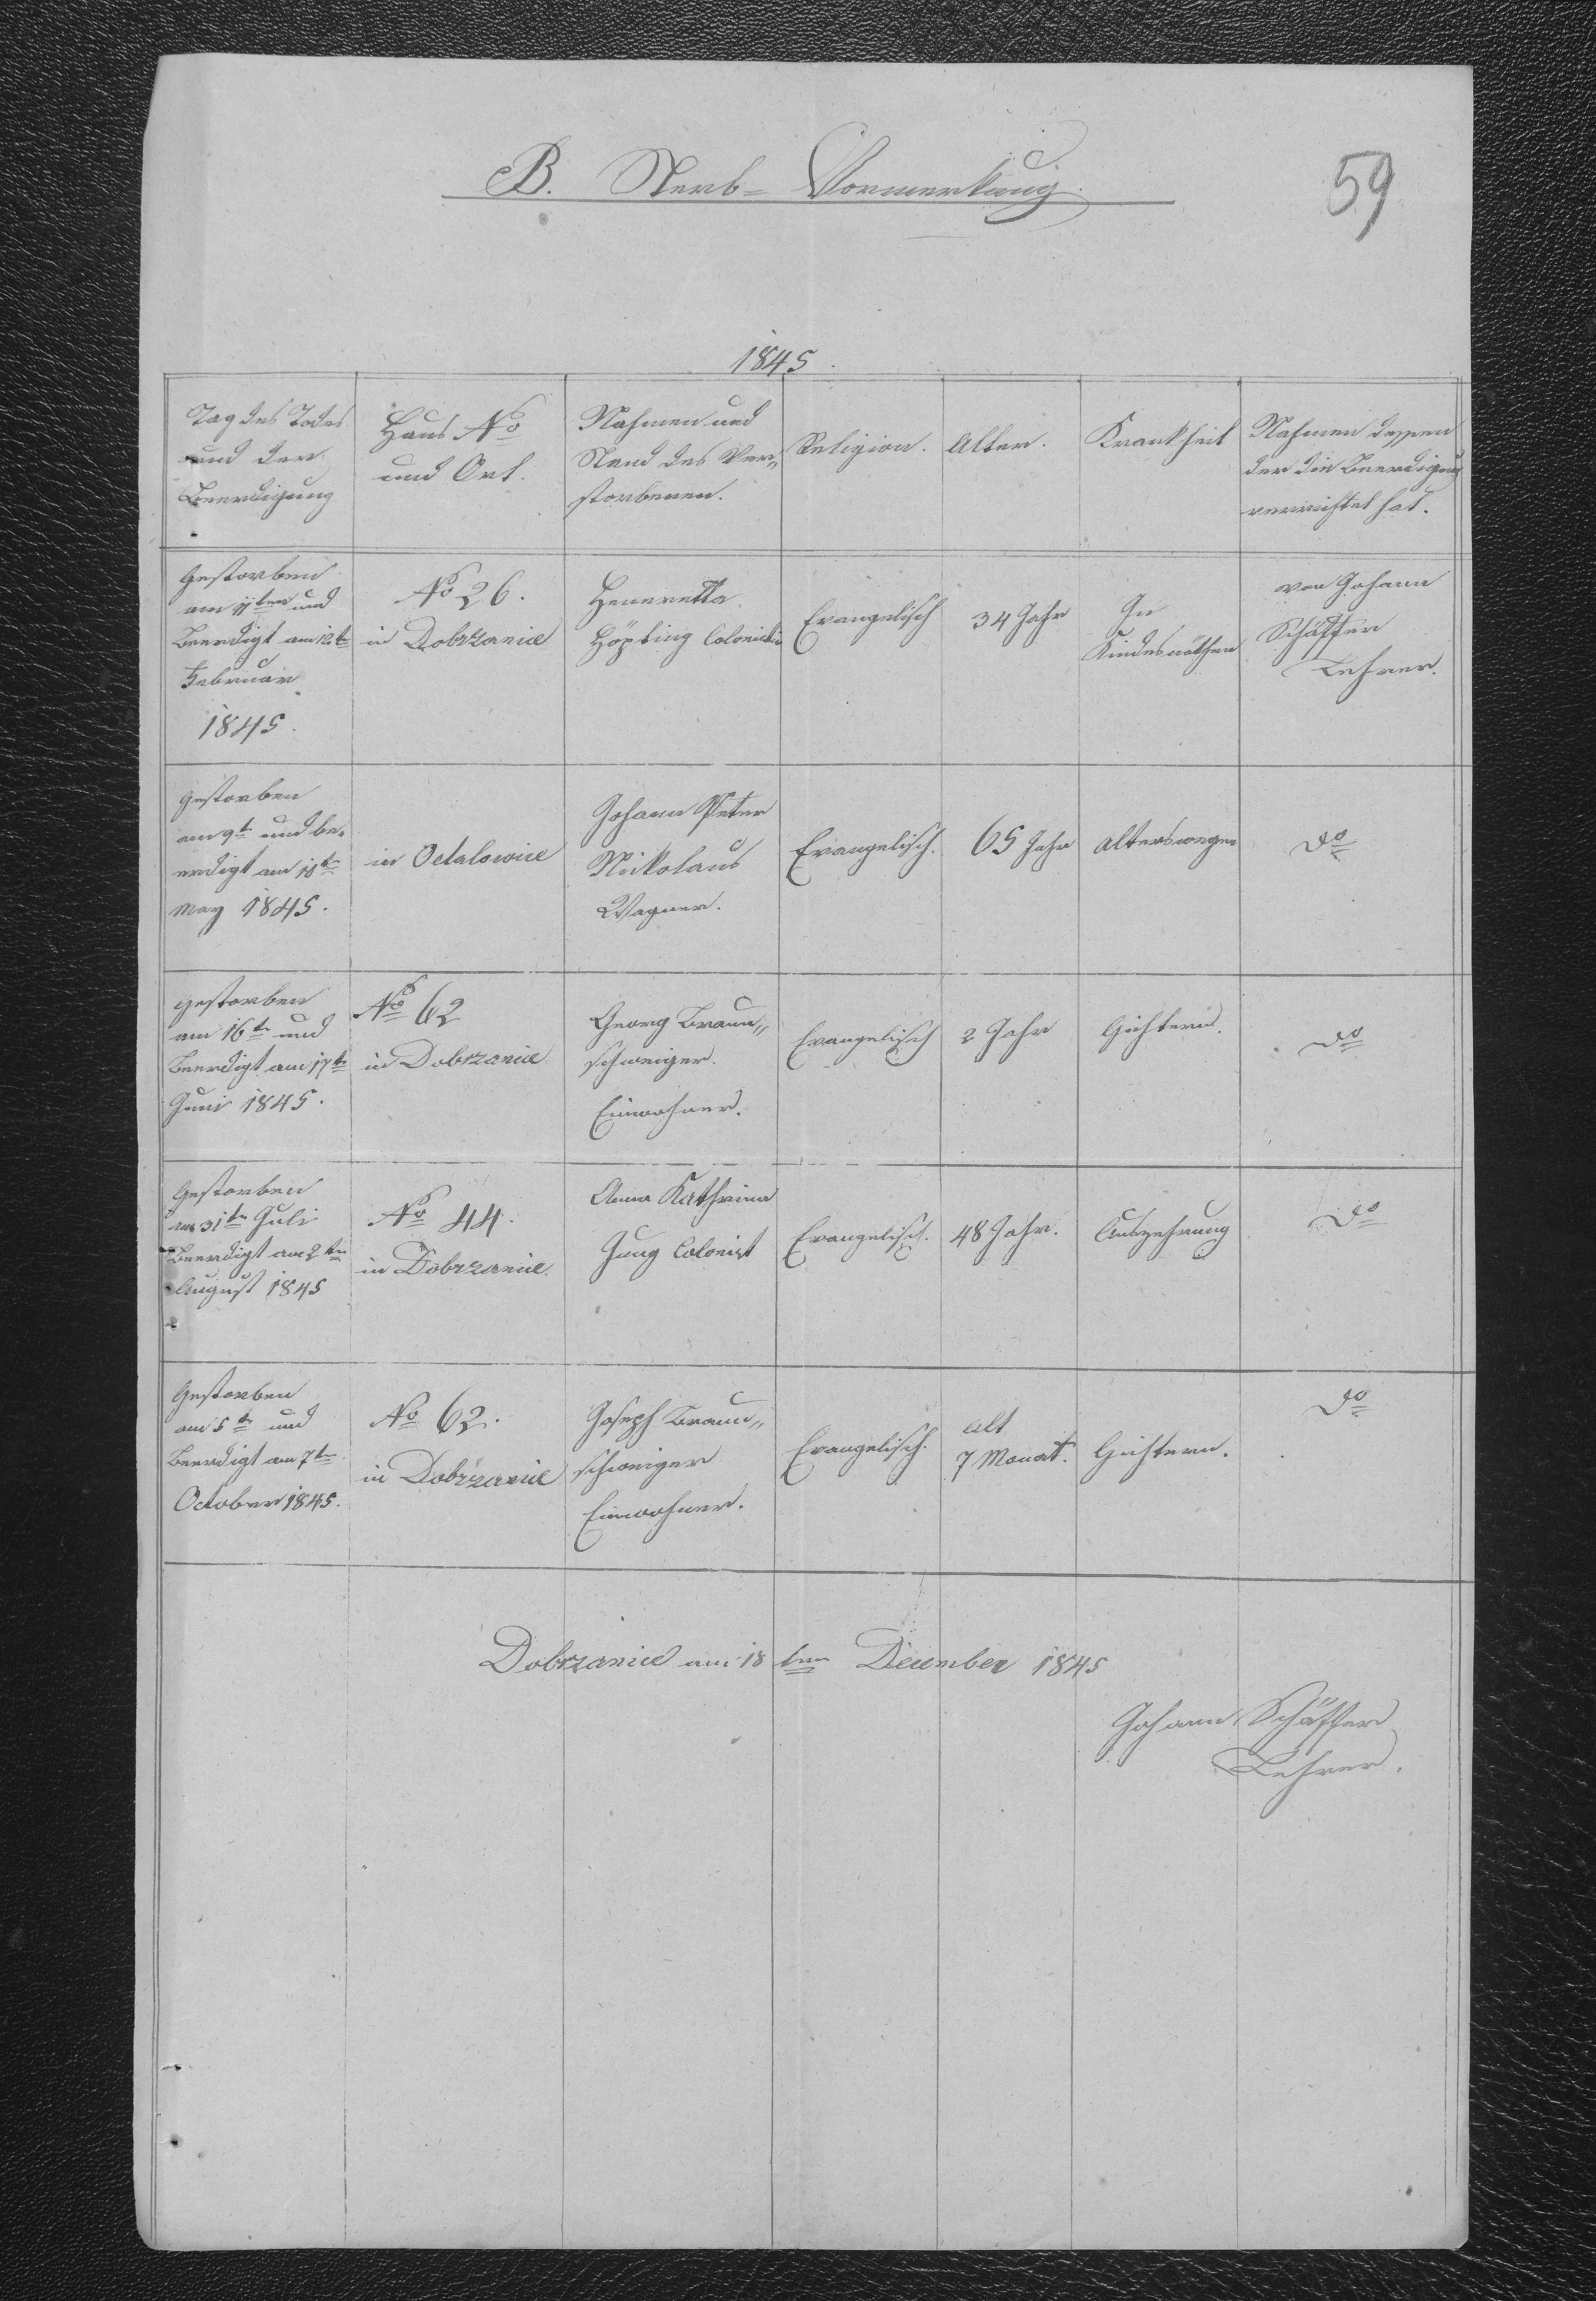 B. Sterb- Vormerkung.
59
1845.
Tag des Todes
und der
Beerdigung
Haus No
und Ort.
Nahmen und
Stand des Ver„
storbenen.
Religion.
Alter.
Krankheit
Nahmen dessen
der die Beerdigung
verrichtet hat.
Gestorben
am 11ten und
Beerdigt am 12t
Februar
1845.
No 26.
in Dobrzanice
Heneretta
Höpting Colonistin
Evangelisch
34 Jahr
In
Kindesnöthen
von Johann
Schäffer
Lehrer.
Gestorben
am 9t und be-
erdigt am 10t
May 1845.
in
Johann Peter
Nikolaus
Wagner.
Evangelisch.
65 Jahr
Alterswegen
do
gestorben
am 16t und
Beerdigt am 17t
Juni 1845.
No 62
in Dobrzanice
Georg Braun„
schweiger
Einwohner.
Evangelisch
2 Jahr
Gichtern.
do
Gestorben
am 31t Juli
Beerdigt am 2ten
August 1845
No 44.
in Dobrzanice.
Anna Kathrina
Jung Colonist
Evangelisch.
48 Jahr.
Auszehrung
do
Gestorben
am 5t und
Beerdigt am 7t
October 1845.
No 62.
in Dobrzanice
Joseph Braun„
schweiger
Einwohner.
Evangelisch.
alt
7 Monat.
Gichtern.
do
Dobrzanice am 18ten December 1845
Johann Schäffer
Lehrer.